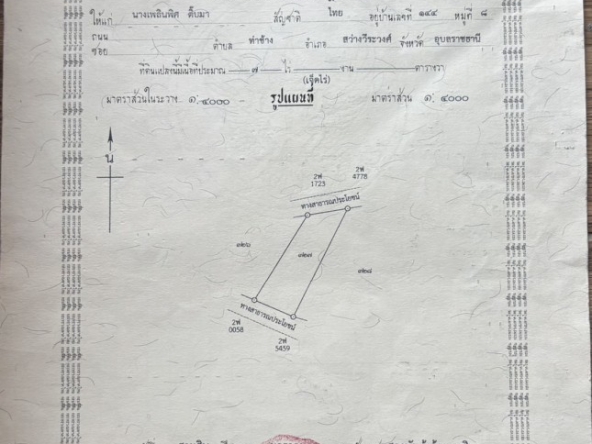 ให้แก่ นางเพลินพิศ ดิ้บมา สัญชาติ ไทย อยู่บ้านเลขที่ ๑๔๔ หมู่ที่ ๘
ถนน
ซอย ตำบล ท่าช้าง อำเภอ สว่างวีระวงศ์ จังหวัด อุบลราชธานี
ที่ดินแปลงนี้มีเนื้อที่ประมาณ ๗ ไร่ งาน ตารางวา
(เจ็ดไร่)
มาตราส่วนในระวาง ๑:๔๐๐๐ รูปแผนที่ มาตราส่วน ๑:๔๐๐๐
น
2ฟ 1723
2ฟ 4778
ทางสาธารณประโยชน์
ทางสาธารณประโยชน์
2ฟ 0058
2ฟ 5459